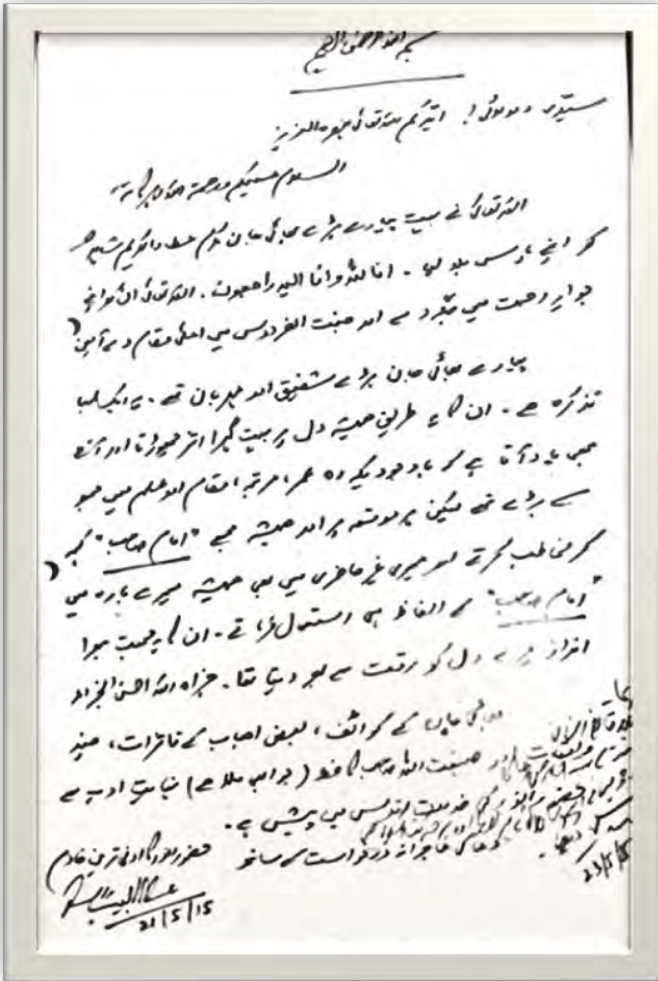 بسم اللہ الرحمن الرحیم
سیدی و مولائی! ایدکم اللہ تعالیٰ بنصرہ العزیز
السلام علیکم ورحمۃ اللہ وبرکاتہ
اللہ تعالیٰ نے بہت پیارے بڑے بھائی جان مکرم عطاءالکریم شاہد
کو اپنے پاس بلا لیا ۔ انا للہ وانا الیہ راجعون ۔ اللہ تعالیٰ ان کو اپنے
جوارِ رحمت میں جگہ دے اور جنت الفردوس میں اعلیٰ مقام دے آمین
پیارے بھائی جان بڑے شفیق اور مہربان تھے ۔ یہ ایک لمبا
تذکرہ ہے ۔ ان کا یہ طریق ہمیشہ دل پر بہت گہرا اثر چھوڑتا اور آج
بھی یاد آتا ہے کہ باوجودیکہ وہ عمر، مرتبہ، مقام اور علم میں مجھ
سے بڑے تھے لیکن ہر موقعہ پر اور ہمیشہ مجھے "امام صاحب" کہہ
کر مخاطب کرتے اور میری غیر حاضری میں بھی ہمیشہ میرے بارہ میں
"امام صاحب" کے الفاظ ہی استعمال فرماتے ۔ ان کا یہ محبت بھرا
انداز میرے دل کو رقت سے بھر دیتا تھا ۔ جزاہ اللہ احسن الجزاء
بھائی جان کے کوائف، بعض احباب کے تاثرات، چند
واقعات اور صبغت اللہ صاحب کا خط (جو ابھی ملا ہے) نہایت ادب سے
خدمت اقدس میں پیش ہے ۔
دعا کی عاجزانہ درخواست کے ساتھ
حضور انور کا ادنیٰ ترین خادم
عطاءالمجیب راشد
21/5/15
23/5/15